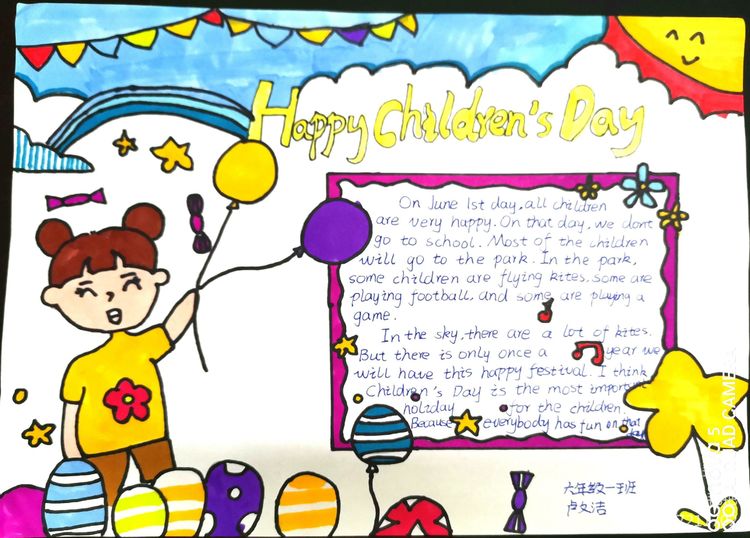 Happy Children's Day
On June 1st day, all children
are very happy. On that day, we dont
go to school. Most of the children
will go to the park. In the park,
some children are flying kites, some are
playing football, and some are playing a
game.
In the sky, there are a lot of kites.
But there is only once a year we
will have this happy festival. I think
Children's Day is the most important
holiday for the children.
Because everybody has fun on that
day
六年教一班
卢文洁